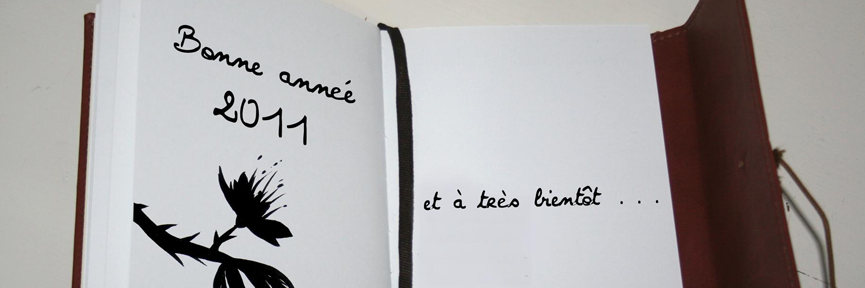 Bonne année
2011
et à très bientôt . . .